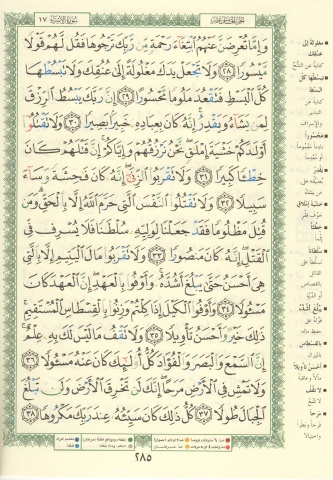 سُورَةُ الإِسْرَاءِ ١٧
الجزء الخامس عشر
وَإِمَّا تُعْرِضَنَّ عَنْهُمُ ٱبْتِغَآءَ رَحْمَةٍ مِّن رَّبِّكَ تَرْجُوهَا فَقُل لَّهُمْ قَوْلًا
مَّيْسُورًا ﴿٢٨﴾ وَلَا تَجْعَلْ يَدَكَ مَغْلُولَةً إِلَىٰ عُنُقِكَ وَلَا تَبْسُطْهَا
كُلَّ ٱلْبَسْطِ فَتَقْعُدَ مَلُومًا مَّحْسُورًا ﴿٢٩﴾ إِنَّ رَبَّكَ يَبْسُطُ ٱلرِّزْقَ
لِمَن يَشَآءُ وَيَقْدِرُ إِنَّهُۥ كَانَ بِعِبَادِهِۦ خَبِيرًۢا بَصِيرًا ﴿٣٠﴾ وَلَا تَقْتُلُوٓا۟
أَوْلَٰدَكُمْ خَشْيَةَ إِمْلَٰقٍ نَّحْنُ نَرْزُقُهُمْ وَإِيَّاكُمْ إِنَّ قَتْلَهُمْ كَانَ
خِطْـًٔا كَبِيرًا ﴿٣١﴾ وَلَا تَقْرَبُوا۟ ٱلزِّنَىٰٓ إِنَّهُۥ كَانَ فَٰحِشَةً وَسَآءَ
سَبِيلًا ﴿٣٢﴾ وَلَا تَقْتُلُوا۟ ٱلنَّفْسَ ٱلَّتِى حَرَّمَ ٱللَّهُ إِلَّا بِٱلْحَقِّ وَمَن
قُتِلَ مَظْلُومًا فَقَدْ جَعَلْنَا لِوَلِيِّهِۦ سُلْطَٰنًا فَلَا يُسْرِف فِّى
ٱلْقَتْلِ إِنَّهُۥ كَانَ مَنصُورًا ﴿٣٣﴾ وَلَا تَقْرَبُوا۟ مَالَ ٱلْيَتِيمِ إِلَّا بِٱلَّتِى
هِىَ أَحْسَنُ حَتَّىٰ يَبْلُغَ أَشُدَّهُۥ وَأَوْفُوا۟ بِٱلْعَهْدِ إِنَّ ٱلْعَهْدَ كَانَ
مَسْـُٔولًا ﴿٣٤﴾ وَأَوْفُوا۟ ٱلْكَيْلَ إِذَا كِلْتُمْ وَزِنُوا۟ بِٱلْقِسْطَاسِ ٱلْمُسْتَقِيمِ
ذَٰلِكَ خَيْرٌ وَأَحْسَنُ تَأْوِيلًا ﴿٣٥﴾ وَلَا تَقْفُ مَا لَيْسَ لَكَ بِهِۦ عِلْمٌ
إِنَّ ٱلسَّمْعَ وَٱلْبَصَرَ وَٱلْفُؤَادَ كُلُّ أُو۟لَٰٓئِكَ كَانَ عَنْهُ مَسْـُٔولًا ﴿٣٦﴾
وَلَا تَمْشِ فِى ٱلْأَرْضِ مَرَحًا إِنَّكَ لَن تَخْرِقَ ٱلْأَرْضَ وَلَن تَبْلُغَ
ٱلْجِبَالَ طُولًا ﴿٣٧﴾ كُلُّ ذَٰلِكَ كَانَ سَيِّئُهُۥ عِندَ رَبِّكَ مَكْرُوهًا ﴿٣٨﴾
٢٨٥
مَغْلُولَةً إِلَى
عُنُقِكَ
كناية عن الشح
تَبْسُطْهَا كُلَّ
البَسْطِ
كناية عن
التبذير
والإسراف
مَحْسُورًا
نادماً مغموماً
يَقْدِرُ
يضيّقه على
من يشاء
خَشْيَةَ إِمْلَاقٍ
خوف فقر
خِطْئًا
إثماً
سُلْطَانًا
تسلّطاً على
القاتل
بالقصاص
يَبْلُغَ أَشُدَّهُ
قوّته على
حفظ ماله
بِالْقِسْطَاسِ
بالميزان
أَحْسَنُ تَأْوِيلًا
مآلاً وعاقبة
لَا تَقْفُ
لا تتّبع
مَرَحًا
فرحاً وبطراً
واختيالاً